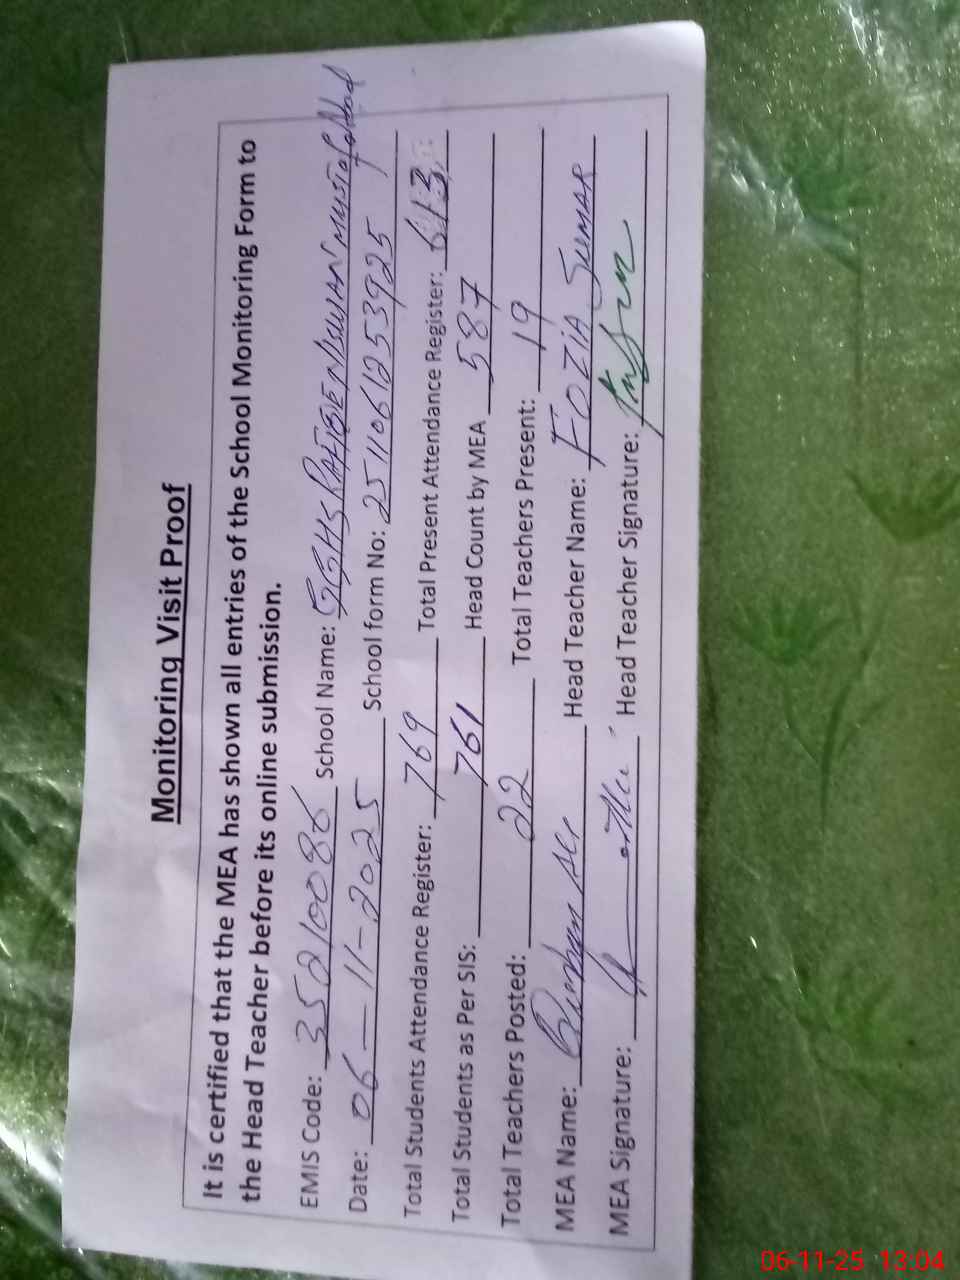 Monitoring Visit Proof
It is certified that the MEA has shown all entries of the School Monitoring Form to
the Head Teacher before its online submission.
EMIS Code: 35210086 School Name: GGHS Mustafabad
Date: 06-11-2025 School form No: 2511061253925
Total Students Attendance Register: 769 Total Present Attendance Register: 613
Total Students as Per SIS: 761 Head Count by MEA 587
Total Teachers Posted: 22 Total Teachers Present: 19
MEA Name: Head Teacher Name: FOZIA
MEA Signature: Head Teacher Signature:
06-11-25 13:04